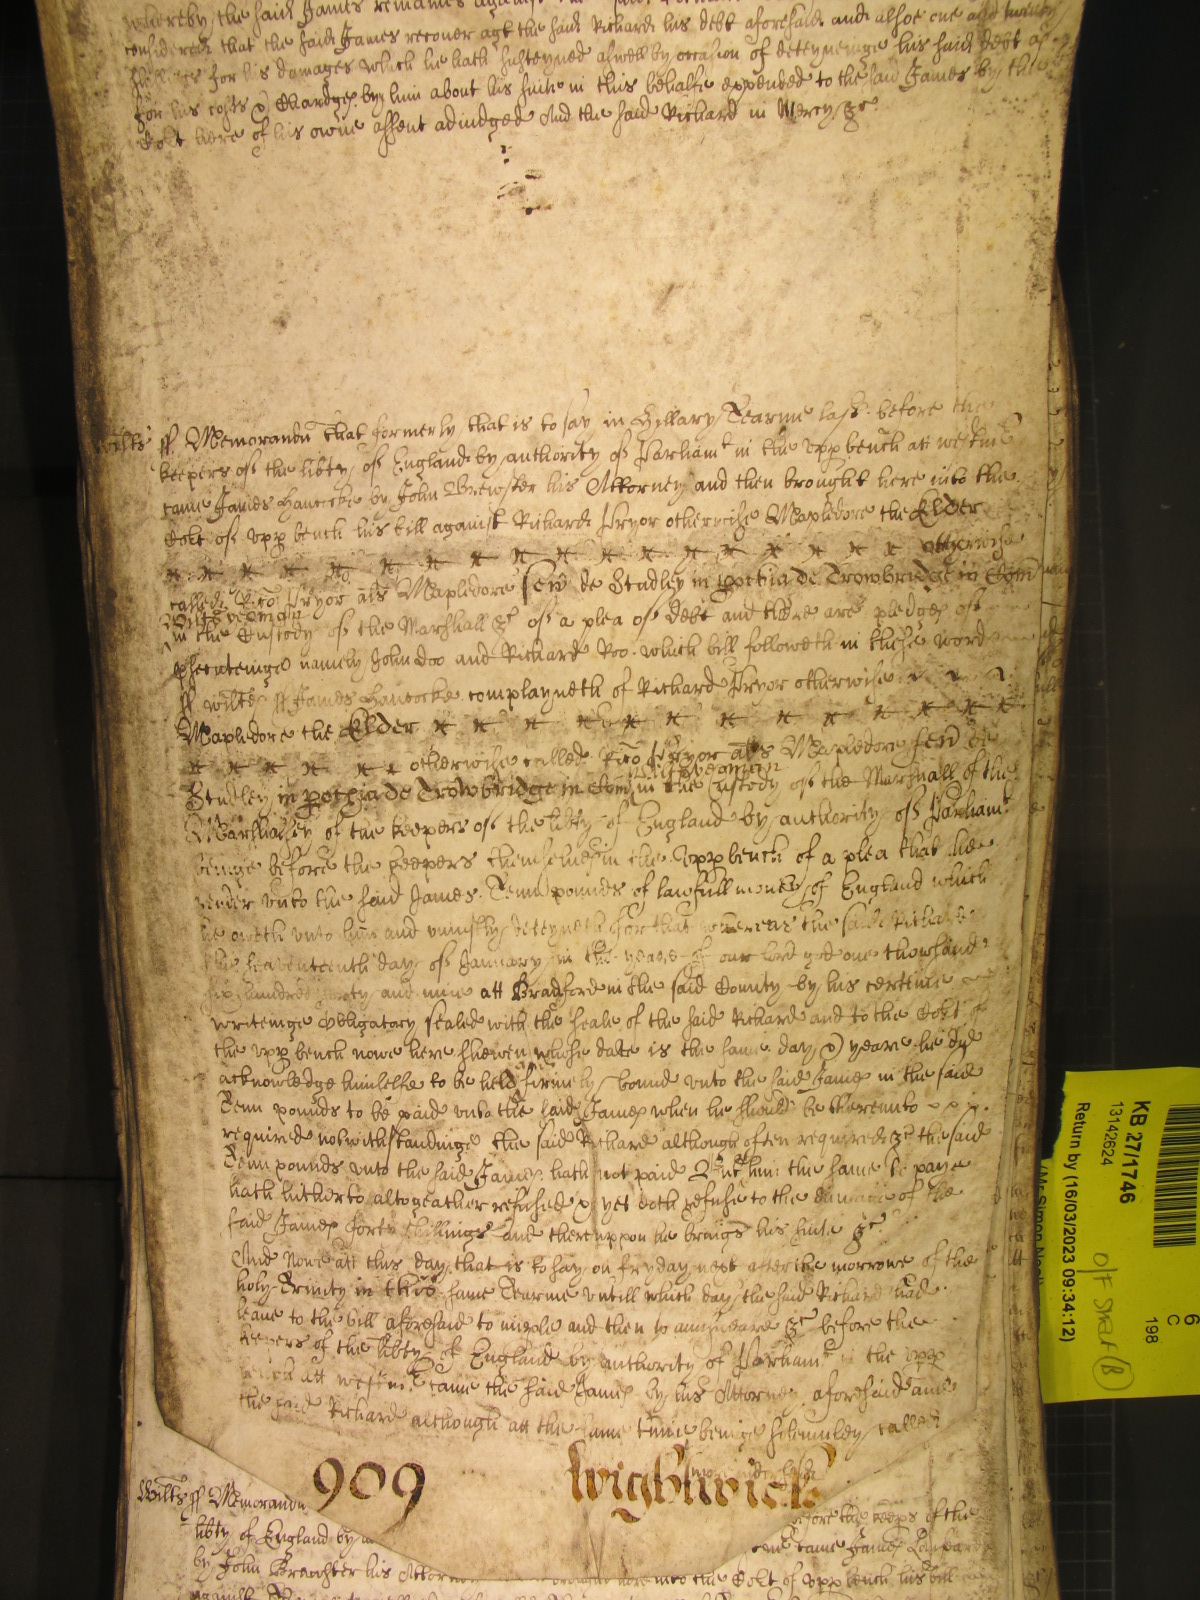 whereby the said James remaines against
considered that the said James recover agt the said Richard his debt aforesaid and alsoe one and twenty
shillings for his damages which he hath susteyned aswell by occasion of deteyneinge his said debt as
for his costs & Chardges by him about his suite in this behalfe expended to the said James by the
Cort here of his owne assent adiudged And the said Richard in Mercy &c
Wilts ss Memorandu That formerly that is to say in Hillary Tearme last before the
keepers of the libty of England by authority of Parliamt in the vpp bench att Westmr
came James Hancocke by John Brewster his Attorney and then brought here into the
Cort of vpp bench his bill against Richard Pryor otherwise Mapledore the Elder
otherwise
called Rico Pryor als Mapledore sen de Studley in pochia de Trowbridge in Com
Wilts yeoman
in the Custody of the Marshall &c of a plea of debt and there are pledges of
psecuteinge namely John Doo and Richard Roo which bill followeth in these words
ss Wilts ss James Hancocke complayneth of Richard Pryor otherwise
Mapledore the Elder
otherwise called Rico Pryor als Mapledore sen de
Wilts yeoman
Studley in pochia de Trowbridge in Com in the Custody of the Marshall of the
Marshalsey of the keepers of the libty of England by authority of Parliamt
beinge before the keepers themselues in the vpp bench of a plea that he
render vnto the said James Tenn pounds of lawfull money of England which
he oweth vnto him and vniustly deteyneth for that whereas the said Richard
the seaventeenth day of January in the yeare of our lord god one thowsand
six hundred forty and nine att Bradford in the said County by his certeine
writeinge Obligatory sealed with the seale of the said Richard and to the Cort of
the vpp bench nowe here shewen whose date is the same day & yeare he did
acknowledge himselfe to be held & firmely bound vnto the said James in the said
Tenn pounds to be paid vnto the said James when he should be therevnto
required notwithstandinge the said Richard although often required &c the said
Tenn pounds vnto the said James hath not paid But him the same to paye
hath hitherto altogeather refused & yet doth refuse to the damage of the
said James forty shillings and therevppon he brings his suite &c
And nowe att this day that is to say on fryday next after the morrowe of the
holy Trinity in this same Tearme vntill which day the said Richard had
leave to the bill aforesaid to imparle and then to aunsweare &c before the
keepers of the libty of England by authority of Parliamt in the vpp
bench att Westmr came the said James by his Attorney aforesaid and
the said Richard although att the same time beinge solemnley called
909 Wightwick
Wilts ss Memorandu before the keeps of the
libty of England by came James
by John Brewster his Attorney brought here into the Cort of vpp bench his bill
against
KB 27/1746
13142624
Return by (16/03/2023 09:34:12)
6
C
198
O/F Straf (B)